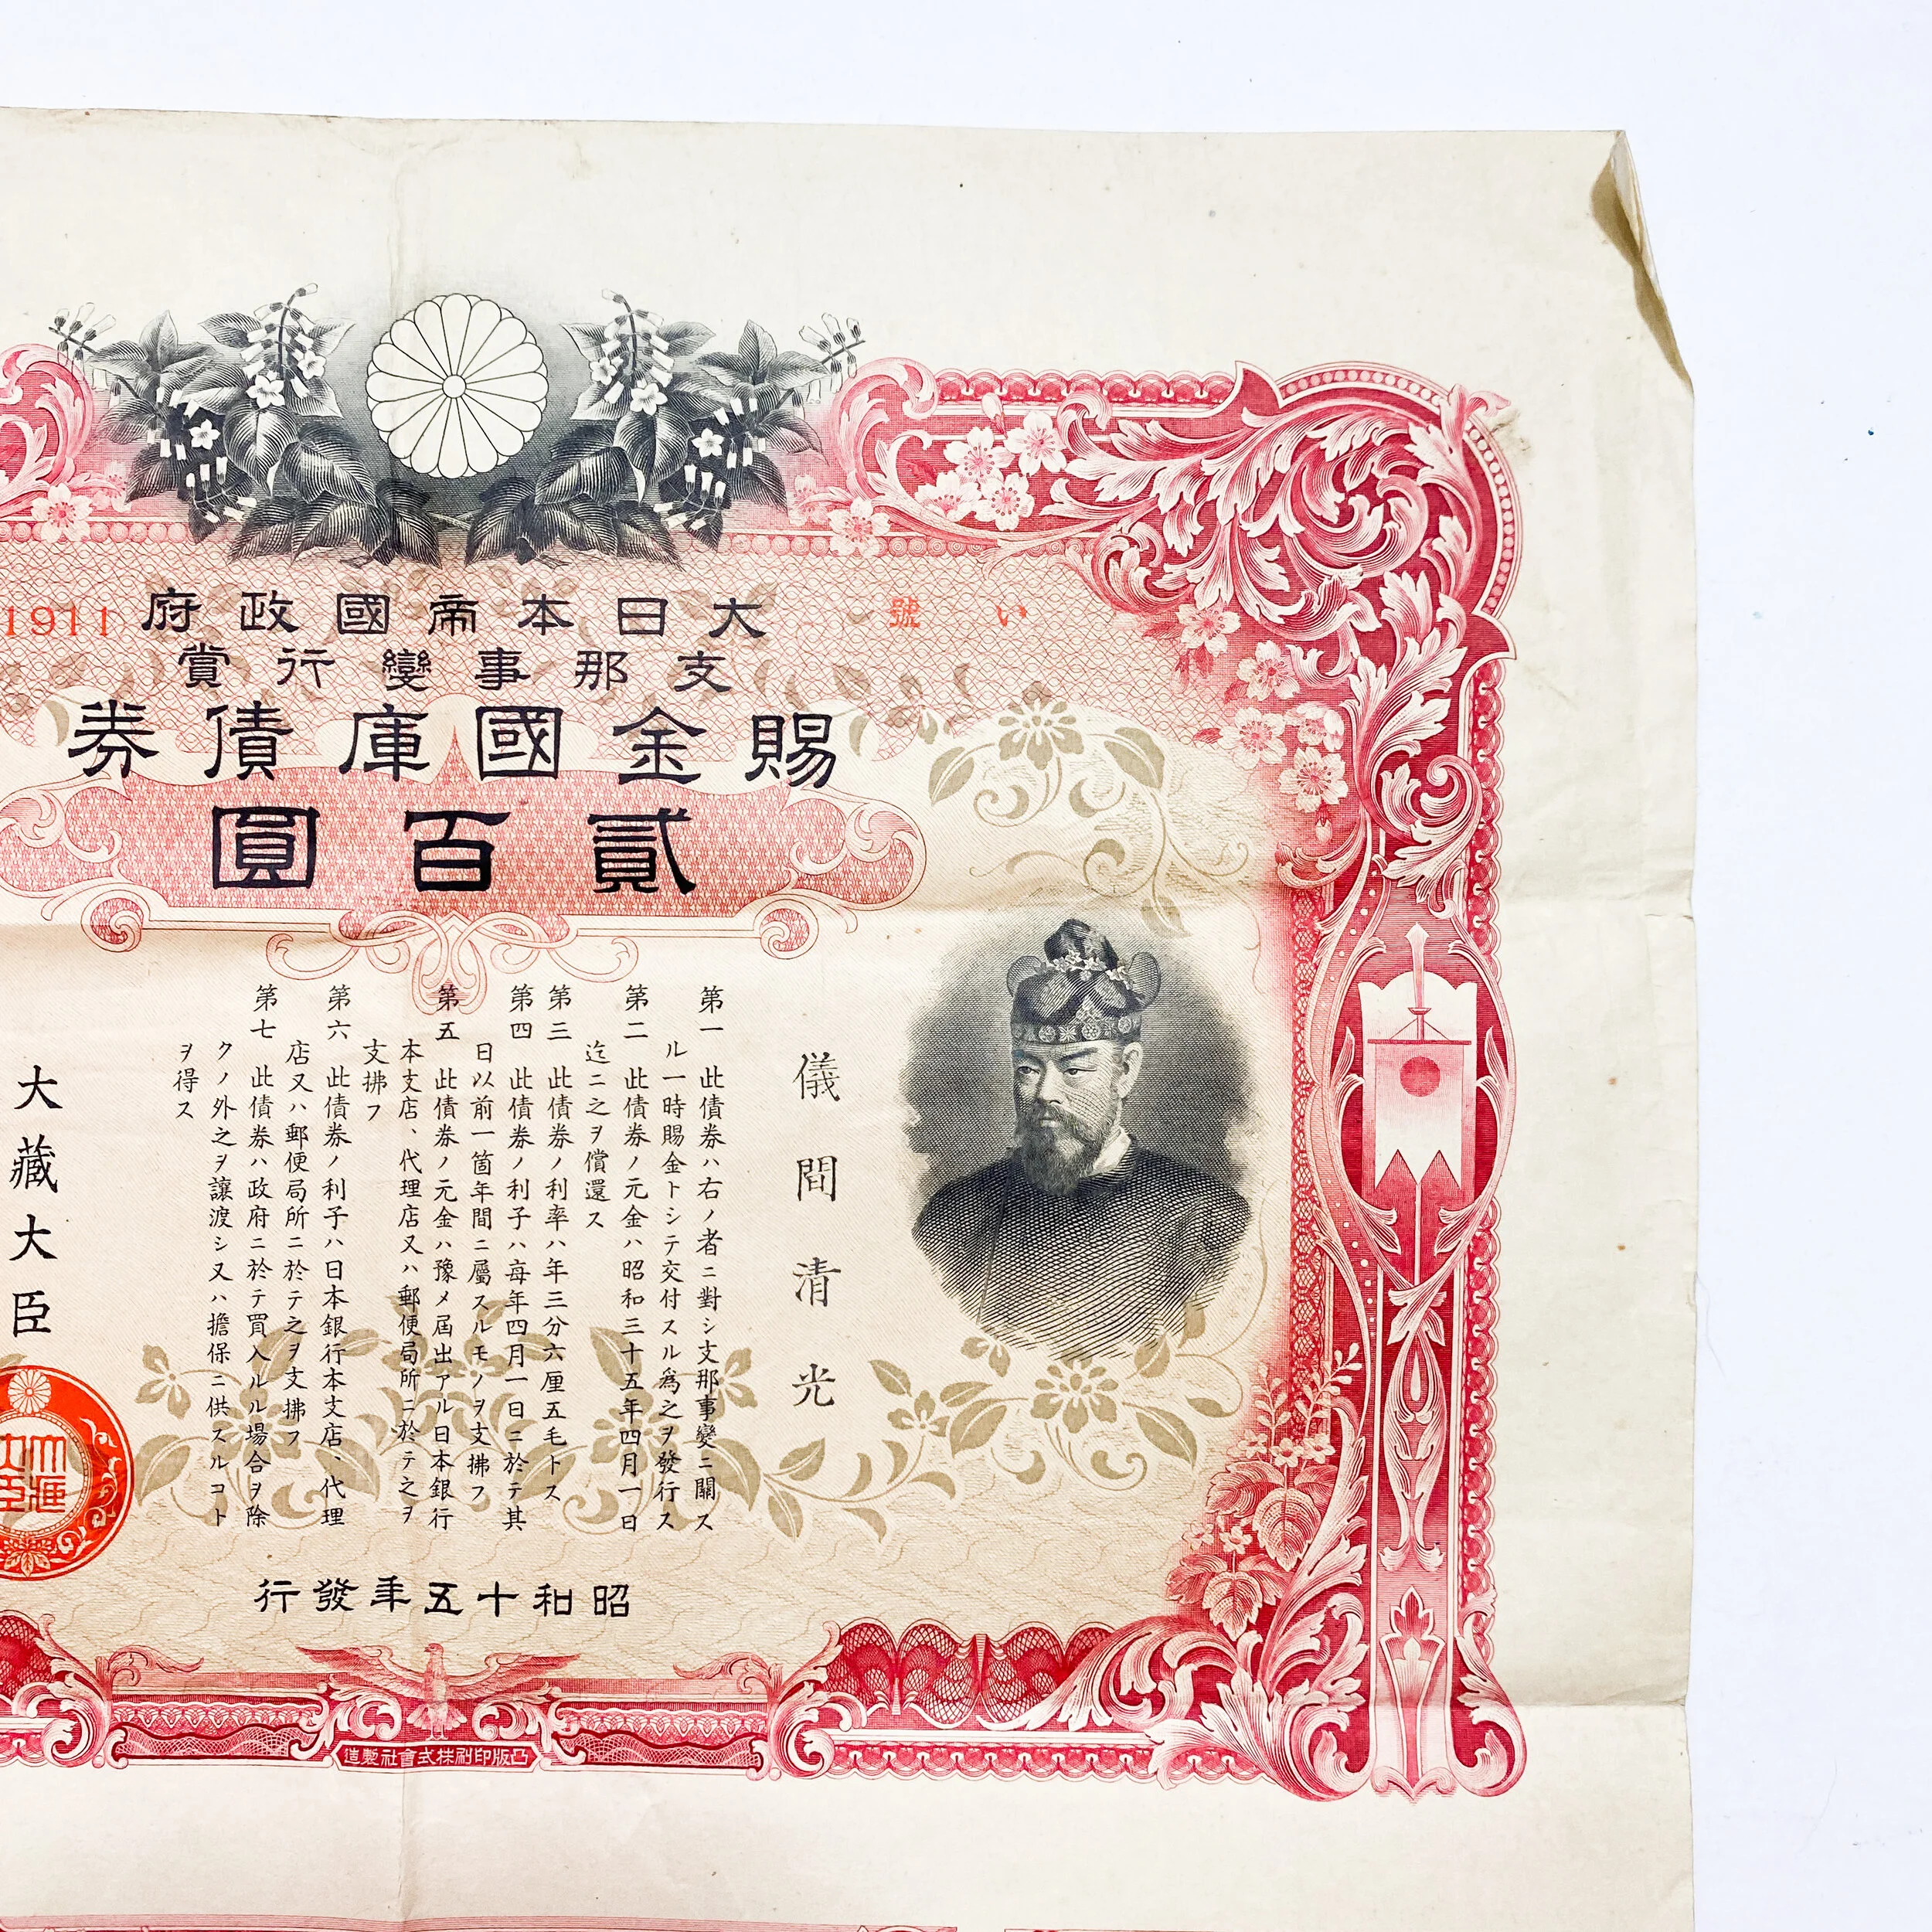 い號 1911
大日本帝國政府
支那事變行賞
賜金國庫債券
貳百圓
儀間清光
第一 此債券ハ右ノ者ニ對シ支那事變ニ關ス
ル一時賜金トシテ交付スル爲之ヲ發行ス
第二 此債券ノ元金ハ昭和三十五年四月一日
迄ニ之ヲ償還ス
第三 此債券ノ利率ハ年三分六厘五毛トス
第四 此債券ノ利子ハ每年四月一日ニ於テ其
日以前一箇年間ニ屬スルモノヲ支拂フ
第五 此債券ノ元金ハ豫メ屆出アル日本銀行
本支店、代理店又ハ郵便局所ニ於テ之ヲ
支拂フ
第六 此債券ノ利子ハ日本銀行本支店、代理
店又ハ郵便局所ニ於テ之ヲ支拂フ
第七 此債券ハ政府ニ於テ買入ルル場合ヲ除
クノ外之ヲ讓渡シ又ハ擔保ニ供スルコト
ヲ得ス
大藏大臣
昭和十五年發行
凸版印刷株式會社製造